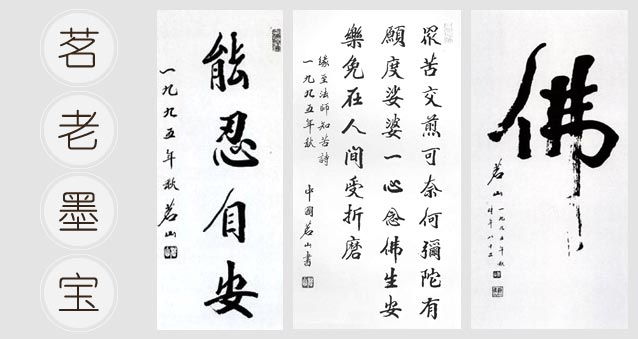 茗老墨宝
能忍自安
一九九五年秋 茗山
眾苦交煎可奈何彌陀有
願度娑婆一心念佛生安
樂免在人間受折磨
緣至法師知苦詩
一九九五年秋 中國茗山書
佛
茗山
一九九五年秋
時年八十二